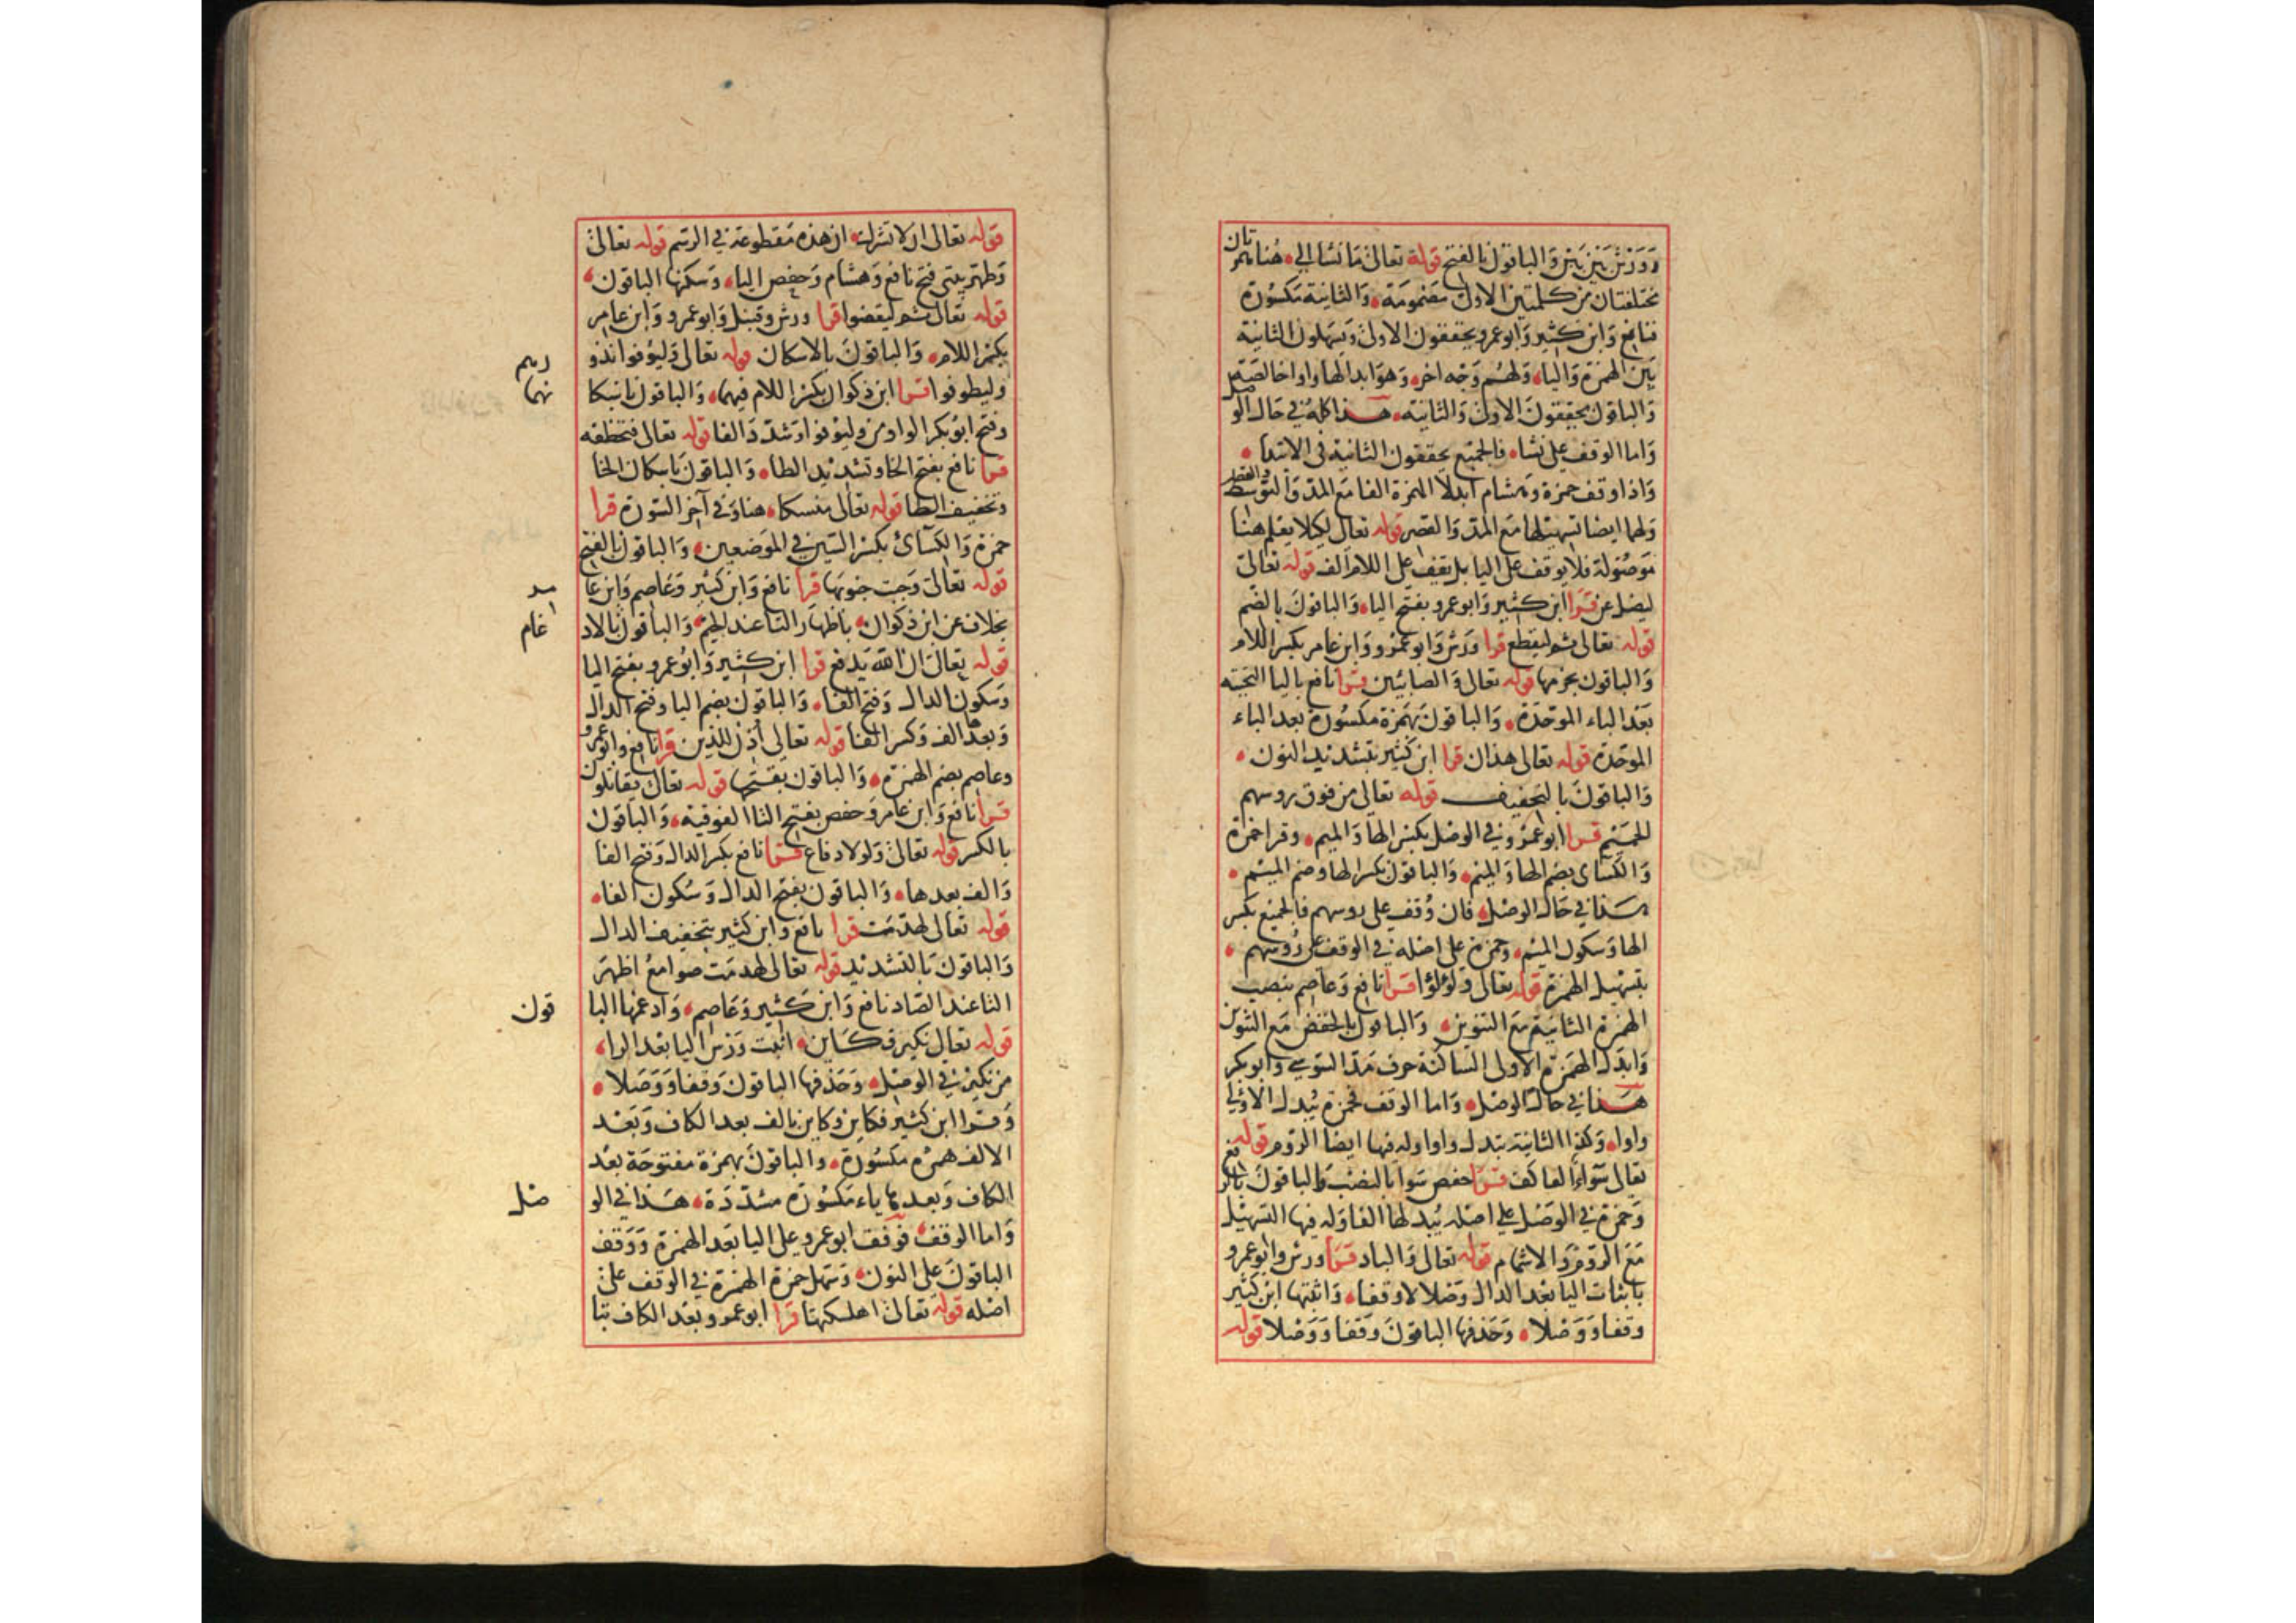 وورش بين بين والباقون بالفتح قوله تعالى ما نشا الى هنا همزتان
مختلفتان من كلمتين الاولى مضمومة والثانية مكسورة
فنافع وابن كثير وابو عمرو يحققون الاولى ويسهلون الثانية
بين الهمزة واليا ولهم وجه اخر وهو ابدالها واوا خالصة
والباقون بتحقيق الاولى والثانية هذا كله في حال الوصل
واما الوقف على نشا فالجميع يحققون الثانية في الابتدا
واذا وقف حمزة وهشام ابدلا الهمزة الفا مع المد والتوسط والقصر
ولهما ايضا تسهيلها مع المد والقصر قوله تعالى لكيلا يعلم هنا
موصولة فلا يوقف على اليا بل يقف على اللام الف قوله تعالى
ليضل عن قرا ابن كثير وابو عمرو بفتح اليا والباقون بالضم
قوله تعالى ثم ليقطع قرا ورش وابو عمرو وابن عامر بكسر اللام
والباقون بجزمها قوله تعالى والصابئين قرا نافع باليا التحتية
بعد الباء الموحدة والباقون بهمزة مكسورة بعد الباء
الموحدة قوله تعالى هذان قرا ابن كثير بتشديد النون
والباقون بالتخفيف قوله تعالى من فوق روسهم
الحميم قرا ابو عمرو في الوصل بكسر الها والميم وقرا حمزة
والكسائ بضم الها والميم والباقون بكسر الها وضم الميم
هذا في حال الوصل فان وقف على روسهم فالجميع بكسر
الها وسكون الميم وحمزة على اصله في الوقف على روسهم
بتسهيل الهمزة قوله تعالى ولؤلؤا قرا نافع وعاصم بنصب
الهمزة الثانية مع التنوين والباقون بالخفض مع التنوين
وابدل الهمزة الاولى الساكنة حرف مد السوسي وابو بكر
هذا في حال الوصل واما الوقف فحمزة يبدل الاولى
واوا وكذا الثانية تبدل واوا وله فيها ايضا الروم قوله
تعالى سواء العاكف قرا حفص سوا بالنصب والباقون بالرفع
وحمزة في الوصل على اصله يبدلها الفا وله فيها التسهيل
مع الروم والاشمام قوله تعالى والباد قرا ورش وابو عمرو
باثبات اليا بعد الدال وصلا لا وقفا واثبتها ابن كثير
وقفا ووصلا وحذفها الباقون وقفا ووصلا قوله
قوله تعالى ان لا تشرك ان هذه مقطوعة في الرسم قوله تعالى
وطهر بيتى فتح نافع وهشام وحفص اليا وسكنها الباقون
قوله تعالى ثم ليقضوا قرا ورش وقنبل وابو عمرو وابن عامر
بكسر اللام والباقون بالاسكان قوله تعالى وليوفوا نذو
رهم
وليطوفوا قرا ابن ذكوان بكسر اللام فيهما والباقون باسكا
نهما
وفتح ابو بكر الواو من وليوفوا وشدد الفا قوله تعالى فتخطفه
قرا نافع بفتح الخا وتشديد الطا والباقون باسكان الخا
وتخفيف الطا قوله تعالى منسكا هنا وفي آخر السورة قرا
حمزة والكسائ بكسر السين في الموضعين والباقون بالفتح
قوله تعالى وجبت جنوبها قرا نافع وابن كثير وعاصم وابن عا
مر
بخلاف عن ابن ذكوان باظهار التا عند الجيم والباقون بالاد
غام
قوله تعالى ان الله يدفع قرا ابن كثير وابو عمرو بفتح اليا
وسكون الدال وفتح الفا والباقون بضم اليا وفتح الدال
وبعدها الف وكسر الفا قوله تعالى اذن للذين قرا نافع وابو عمرو
وعاصم بضم الهمزة والباقون بفتحها قوله تعالى يقاتلون
قرا نافع وابن عامر وحفص بفتح التا الفوقية والباقون
بالكسر قوله تعالى ولولا دفاع قرا نافع بكسر الدال وفتح الفا
والف بعدها والباقون بفتح الدال وسكون الفا
قوله تعالى لهدمت قرا نافع وابن كثير بتخفيف الدال
والباقون بالتشديد قوله تعالى لهدمت صوامع اظهر
التا عند الصاد نافع وابن كثير وعاصم وادغمها البا
قون
قوله تعالى نكير فكاين اثبت ورش اليا بعد الرا
من نكير في الوصل وحذفها الباقون وقفا ووصلا
وقرا ابن كثير فكاين وكاين بالف بعد الكاف وبعد
الالف همزة مكسورة والباقون بهمزة مفتوحة بعد
الكاف وبعدها ياء مكسورة مشددة هذا في الو
صل
واما الوقف فوقف ابو عمرو على اليا بعد الهمزة ووقف
الباقون على النون وتسهل حمزة الهمزة في الوقف على
اصله قوله تعالى اهلكتها قرا ابو عمرو بعد الكاف بتا